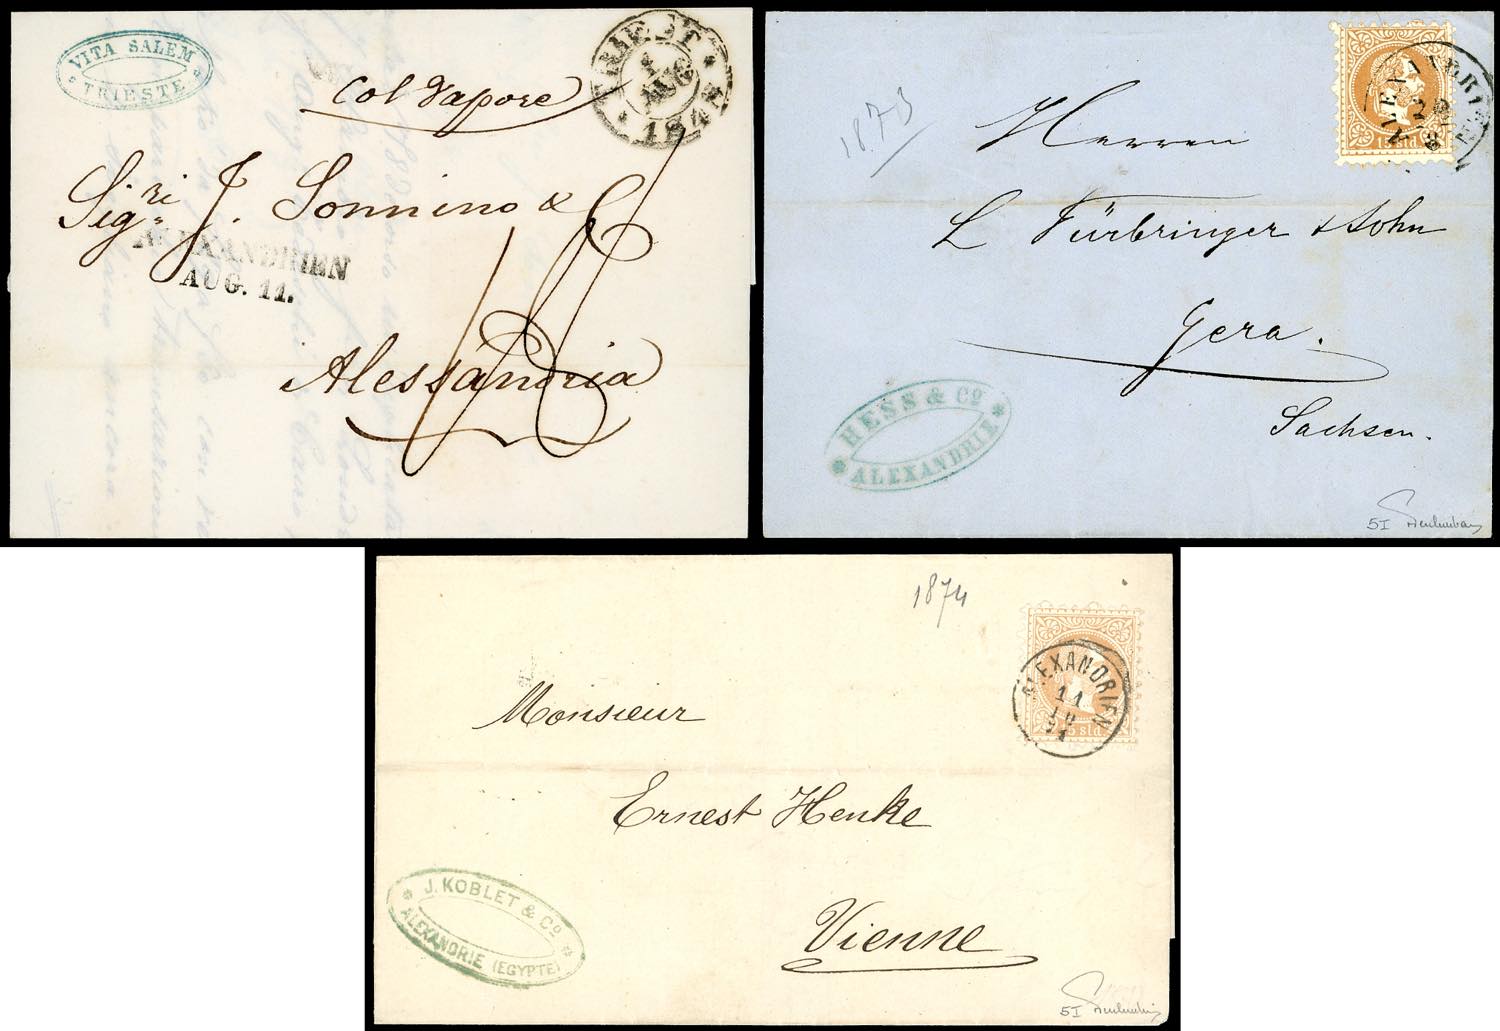 VITA SALEM
* TRIESTE *
TRIEST
AUG
Col Vapore
Sig.ri J. Sonnino & C
ALEXANDRIEN
AUG. 11.
Alessandria
1873
ALEXANDRIEN
15 sld.
Herren
L Fürbringer & Sohn
Gera.
Sachsen.
HESS & Co
* ALEXANDRIE *
5I
1874
ALEXANDRIEN
11
10
sld.
Monsieur
Ernest Henke
Vienne
J. KOBLET & Co
* ALEXANDRIE (EGYPTE) *
5I